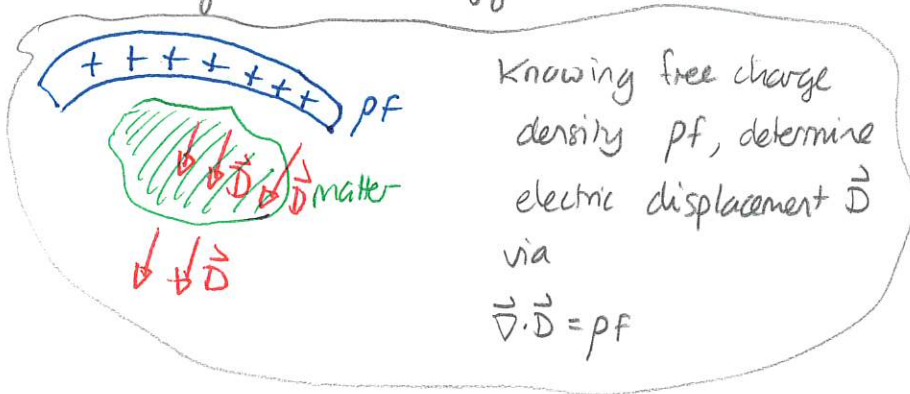 + + + + + + +
pf
D⃗ D⃗ matter
D⃗
Knowing free charge
density pf, determine
electric displacement D⃗
via
∇⃗·D⃗ = pf